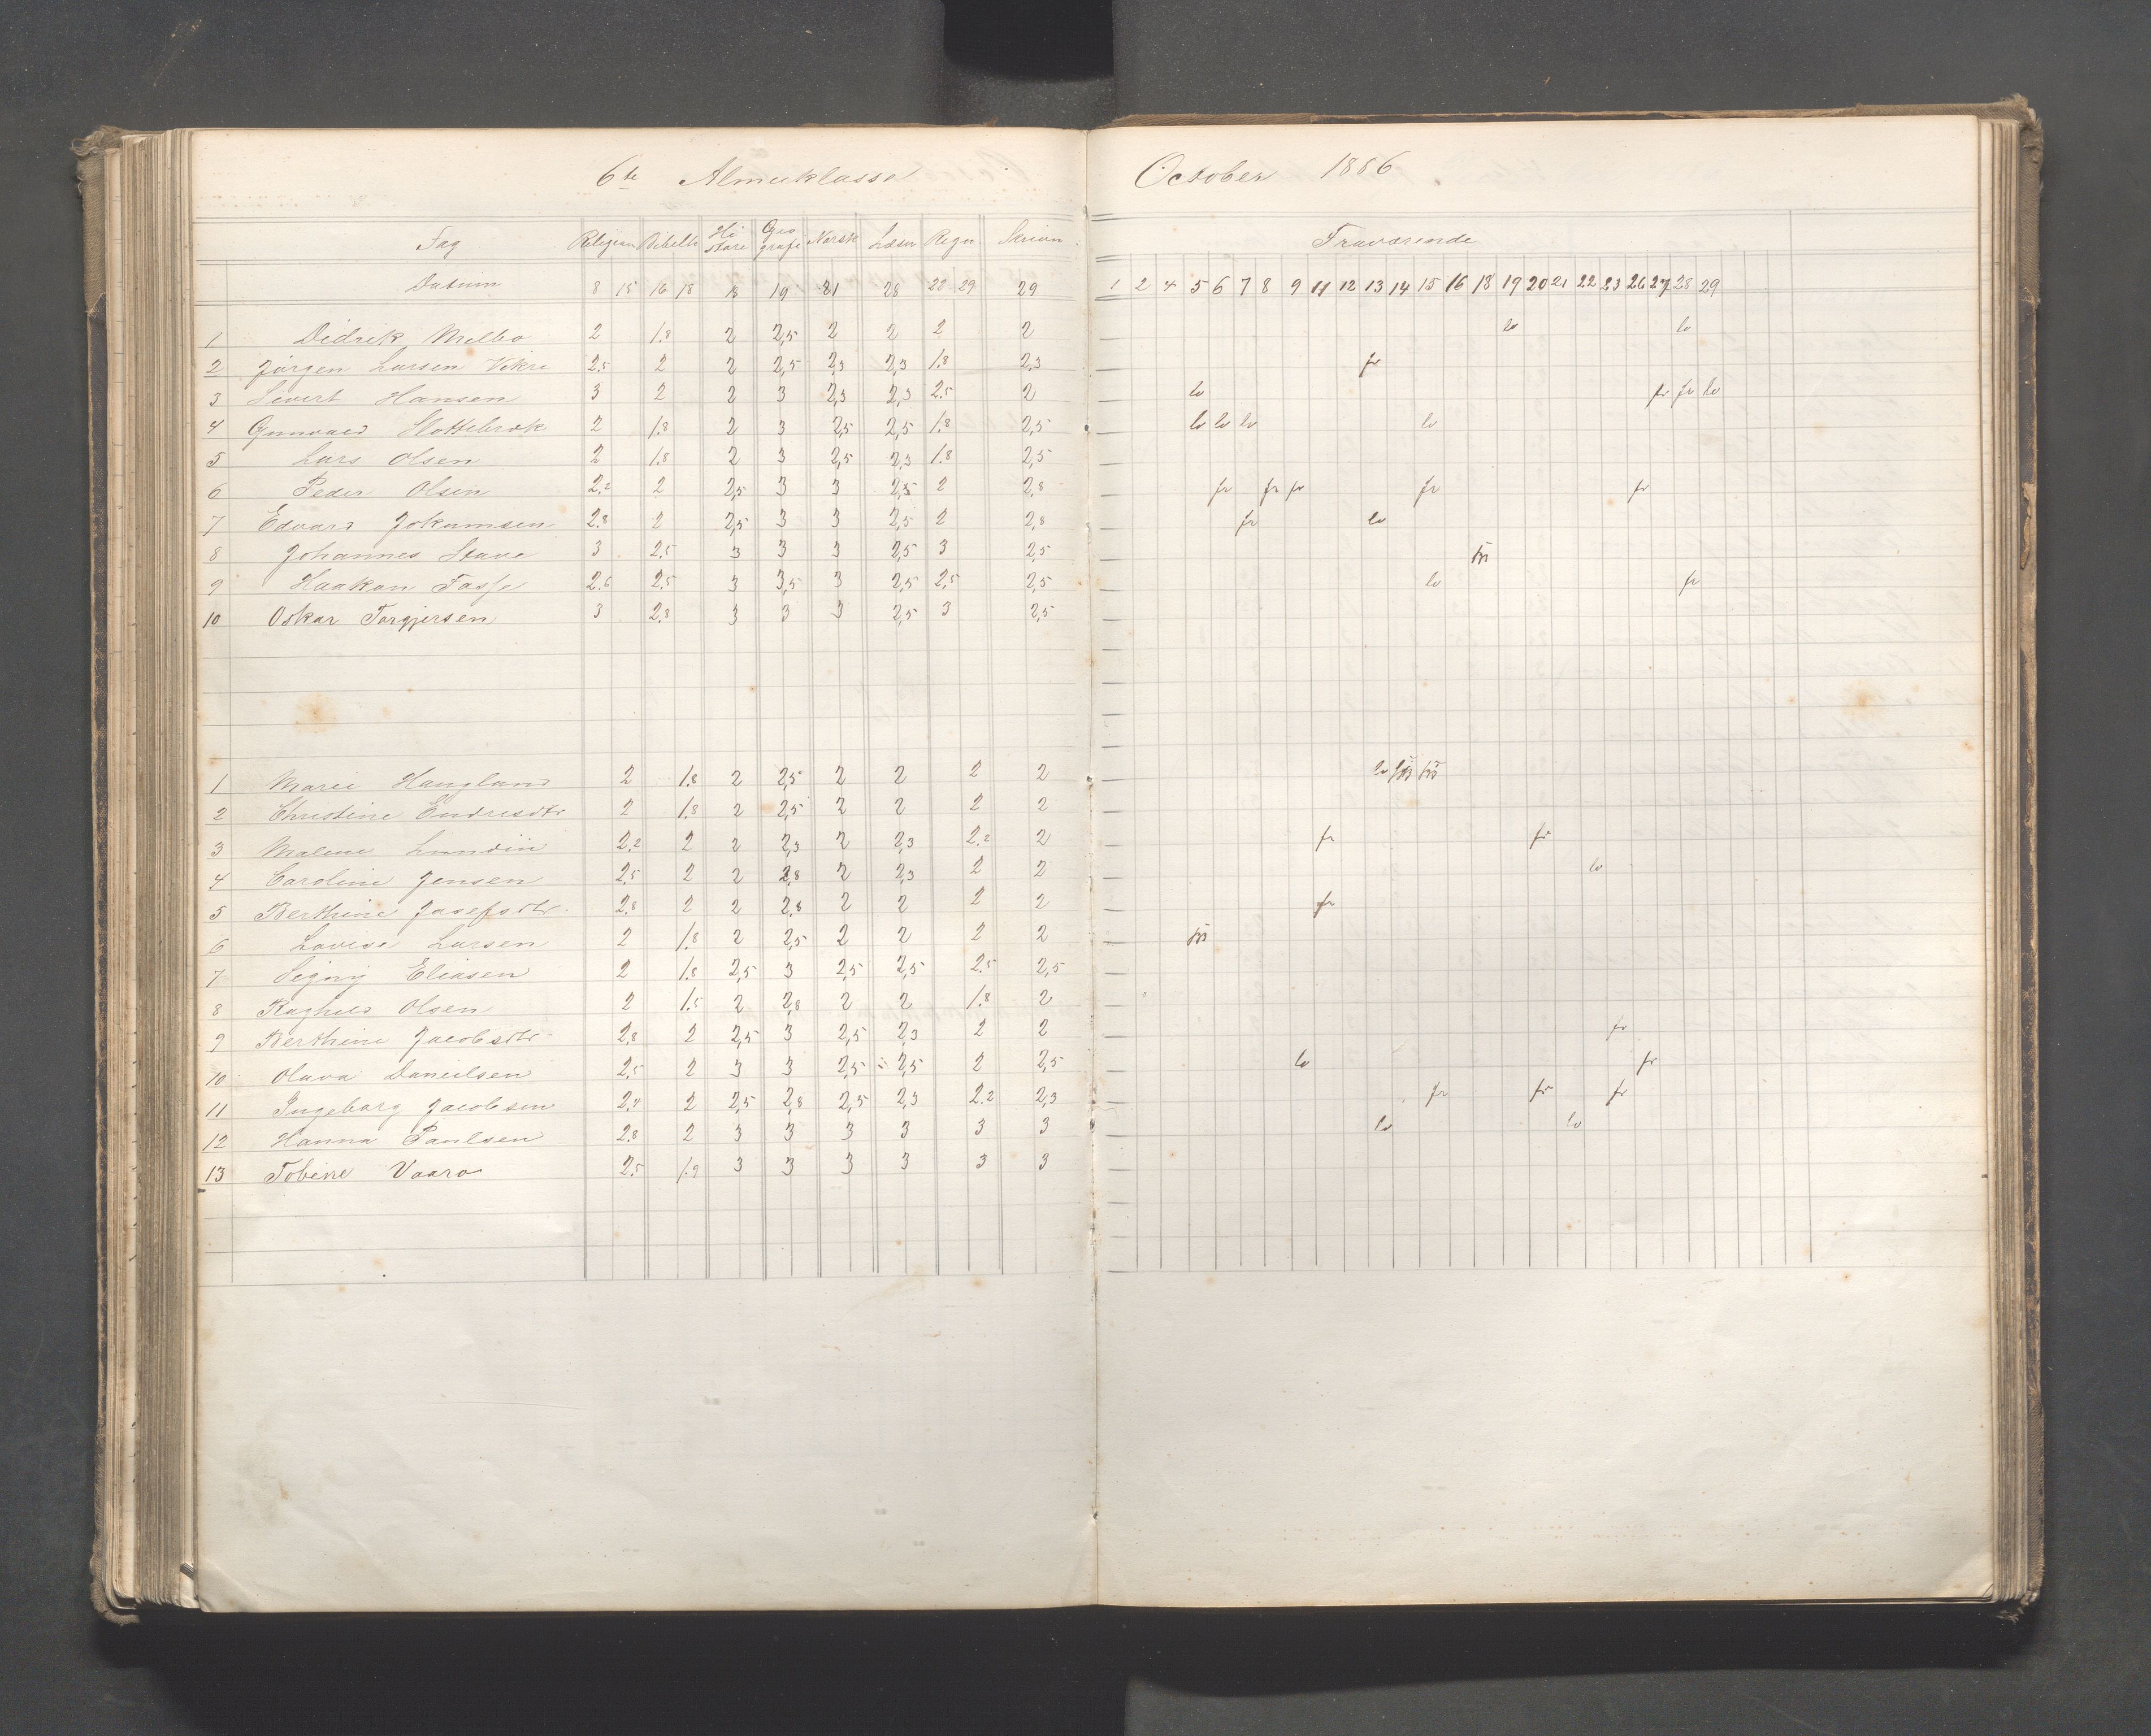 6te Almueklasse October 1886
Fag Religion Bibelh Hi storie Geo grafi Norsk Læsn Regn Skrivn Fraværende
Datum 8 15 16 18 18 19 21 28 22 29 29 1 2 4 5 6 7 8 9 11 12 13 14 15 16 18 19 20 21 22 23 26 27 28 29
1 Didrek Melbo 2 1.8 2 2,5 2 2 2 2 lo lo
2 Jörgen Larsen Vikre 2.5 2 2 2,5 2,3 2,3 1.8 2,3 fr
3 Sivert Hansen 3 2 2 3 2,3 2,3 2.5 2 lo fr fr lo
4 Gunvald Slottebrok 2 1.8 2 3 2,5 2,5 1.8 2,5 lo lo lo lo
5 Lars Olsen 2 1.8 2 3 2,5 2,3 1.8 2,5
6 Peder Olsen 2.2 2 2,5 3 3 2,5 2 2,8 fr fr fr fr fr
7 Edvard Jokumsen 2.8 2 2,5 3 3 2,5 2 2,8 fr lo
8 Johannes Stave 3 2.5 3 3 3 2,5 3 2,5
9 Haakon Fasse 2.6 2.5 3 3,5 3 2,5 2.5 2,5 lo fr
10 Oskar Torgjersen 3 2.8 3 3 3 2,5 3 2,5
1 Marie Haugland 2 1.8 2 2,5 2 2 2 2 lo
2 Christine Endresdtr 2 1.8 2 2,5 2 2 2 2
3 Malene Lundin 2.2 2 2 2,3 2 2,3 2.2 2 fr fr
4 Caroline Jensen 2.5 2 2 2,8 2 2,3 2 2 lo
5 Berthine Josefsdtr. 2.8 2 2 2,8 2 2 2 2 fr
6 Lovise Larsen 2 1.8 2 2,5 2 2 2 2
7 Signy Eliasen 2 1.8 2,5 3 2,5 2,5 2.5 2,5
8 Raghild Olsen 2 1.5 2 2,8 2 2 1.8 2
9 Berthine Jacobsdtr 2.8 2 2,5 3 2,5 2,3 2 2 fr
10 Olava Danielsen 2.5 2 3 3 2,5 2,5 2 2,5 lo fr
11 Ingeborg Jacobsen 2.4 2 2,5 2,8 2,5 2,3 2.2 2,3 fr fr fr
12 Hanna Paulsen 2.8 2 3 3 3 3 3 3 lo lo
13 Tobine Vaaro 2.5 1.9 3 3 3 3 3 3